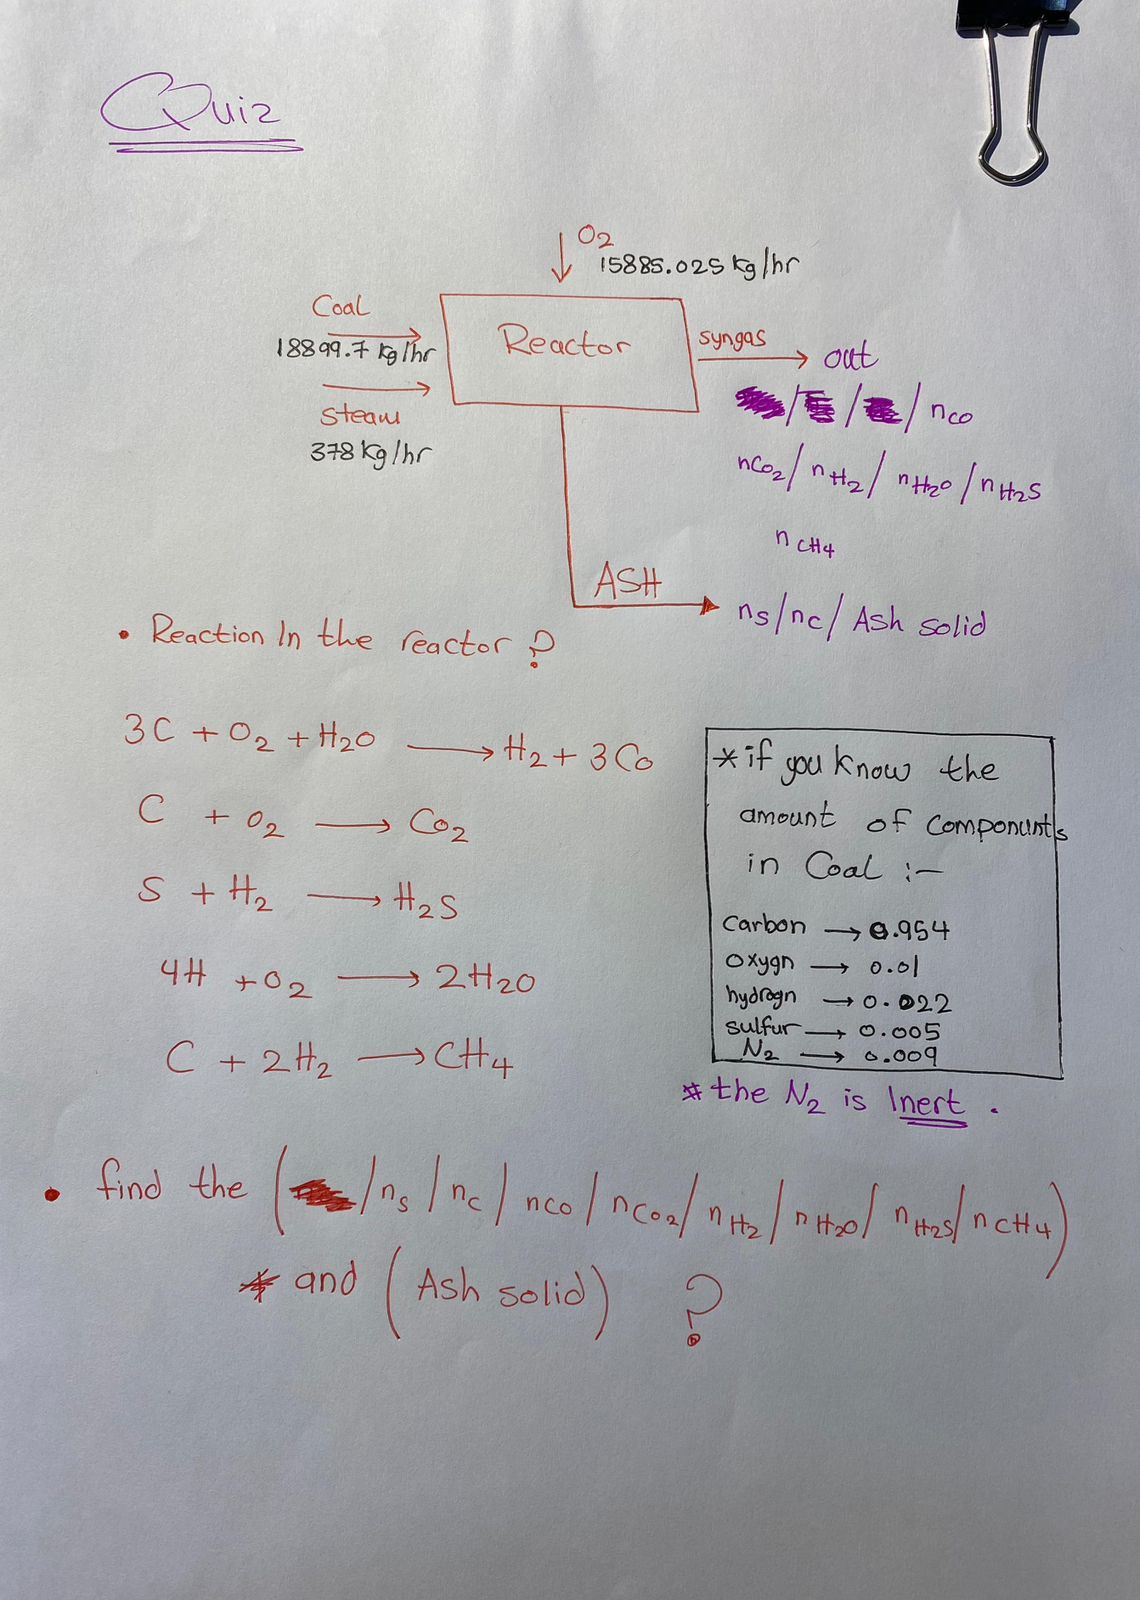 Quiz
O2
15885.025 kg/hr
Coal
18899.7 kg/hr
Reactor
syngas
out
steam
378 kg/hr
/ / / nCO
nCO2 / nH2 / nH2O / nH2S
nCH4
ASH
ns / nc / Ash solid
• Reaction In the reactor ?
3C + O2 + H2O → H2 + 3CO
C + O2 → CO2
S + H2 → H2S
4H + O2 → 2H2O
C + 2H2 → CH4
* if you know the
amount of componunts
in Coal :-
Carbon → 0.954
oxygn → 0.01
hydrogn → 0.022
sulfur → 0.005
N2 → 0.009
* the N2 is Inert .
• find the ( / ns / nc / nCO / nCO2 / nH2 / nH2O / nH2S / nCH4)
* and (Ash solid) ?